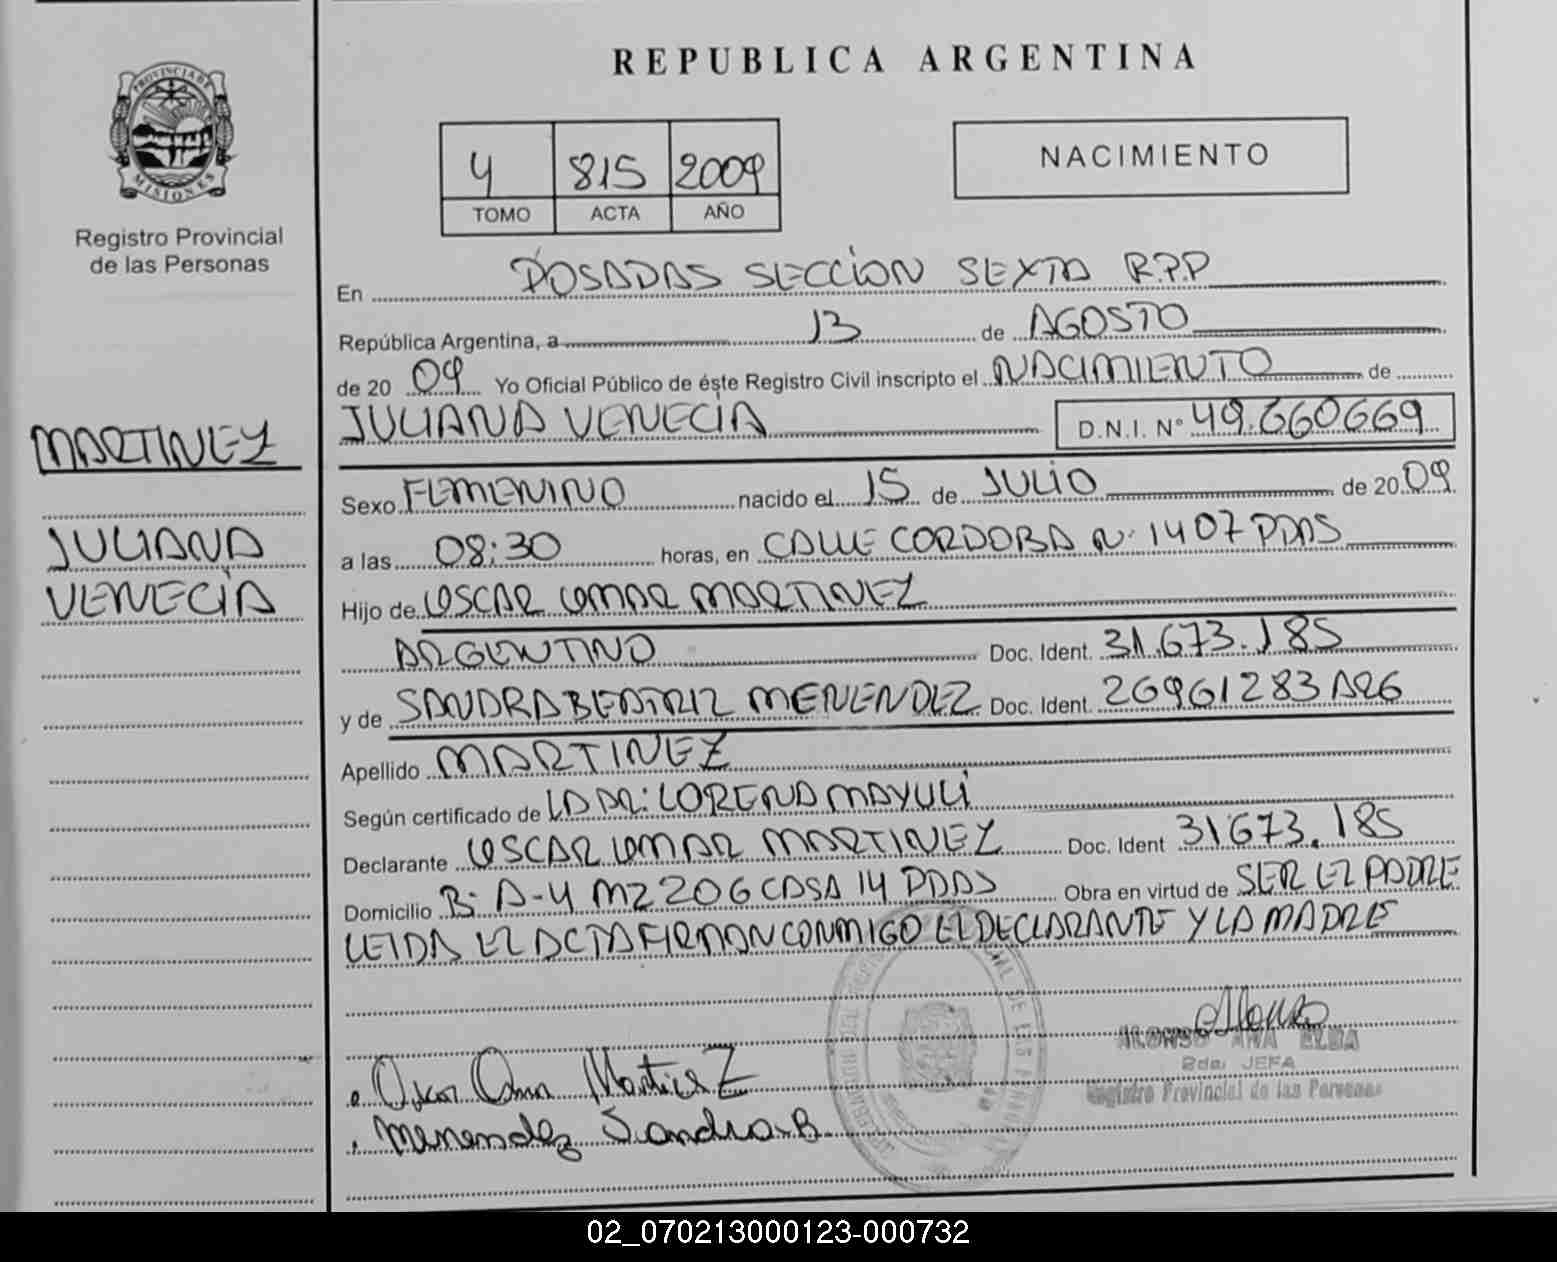 REPUBLICA ARGENTINA
PROVINCIA DE
MISIONES
Registro Provincial
de las Personas
4 815 2009
TOMO ACTA AÑO
NACIMIENTO
En POSADAS SECCION SEXTA R.P.P
República Argentina, a 13 de AGOSTO
de 20 09 Yo Oficial Público de éste Registro Civil inscripto el NACIMIENTO de
JULIANA VENECIA D.N.I. N° 49.660669
MARTINEZ
JULIANA
VENECIA
Sexo FEMENINO nacido el 15 de JULIO de 20 09
a las 08:30 horas, en CALLE CORDOBA N° 1407 PDAS
Hijo de OSCAR OMAR MARTINEZ
ARGENTINO Doc. Ident. 31.673.185
y de SANDRA BEATRIZ MENENDEZ Doc. Ident. 26961283 ARG
Apellido MARTINEZ
Según certificado de LA DR: LORENA MAYULI
Declarante OSCAR OMAR MARTINEZ Doc. Ident 31673.185
Domicilio B: A-4 MZ 206 CASA 14 PDAS Obra en virtud de SER EL PADRE
LEIDA EL ACTA FIRMAN CONMIGO EL DECLARANTE Y LA MADRE
Alonso
ALONSO ANA ELBA
JEFA
Registro Provincial de las Personas
Oscar Omar Martinez
Menendez Sandra B.
02_070213000123-000732